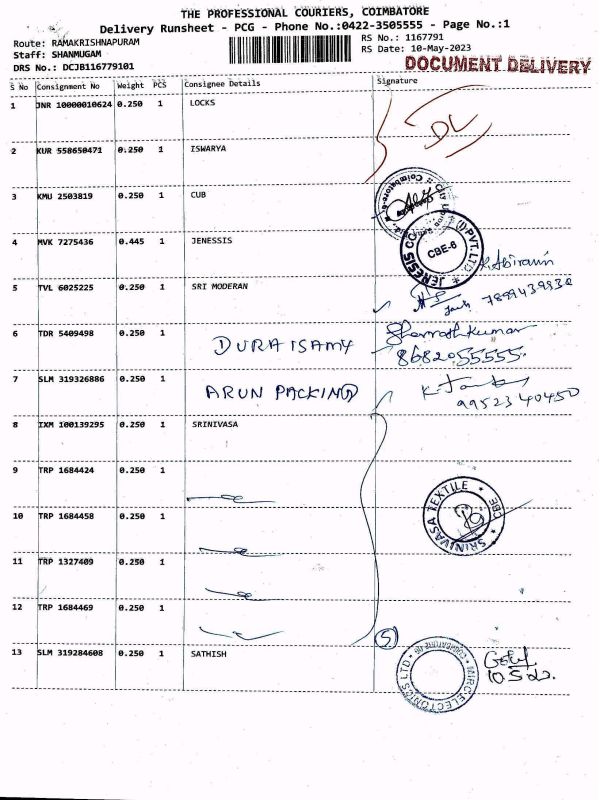 THE PROFESSIONAL COURIERS, COIMBATORE
Delivery Runsheet - PCG - Phone No.:0422-3505555 - Page No.:1
Route: RAMAKRISHNAPURAM
RS No.: 1167791
Staff: SHANMUGAM
RS Date: 10-May-2023
DRS No.: DCJB116779101
DOCUMENT DELIVERY
S No Consignment No Weight PCS Consignee Details Signature
1 JNR 10000010624 0.250 1 LOCKS
DL
2 KUR 558650471 0.250 1 ISWARYA
3 KMU 2503819 0.250 1 CUB
4 MVK 7275436 0.445 1 JENESSIS
JENESIS CBE-6 (I) PVT. LTD
K. Abirami
5 TVL 6025225 0.250 1 SRI MODERAN
7899439830
6 TDR 5409498 0.250 1 DURAISAMY
8682055555
7 SLM 319326886 0.250 1 ARUN PACKING
9952340450
8 IXM 100139295 0.250 1 SRINIVASA
9 TRP 1684424 0.250 1
SRINIVASA TEXTILE CBE
10 TRP 1684458 0.250 1
11 TRP 1327409 0.250 1
12 TRP 1684469 0.250 1
5
13 SLM 319284608 0.250 1 SATHISH